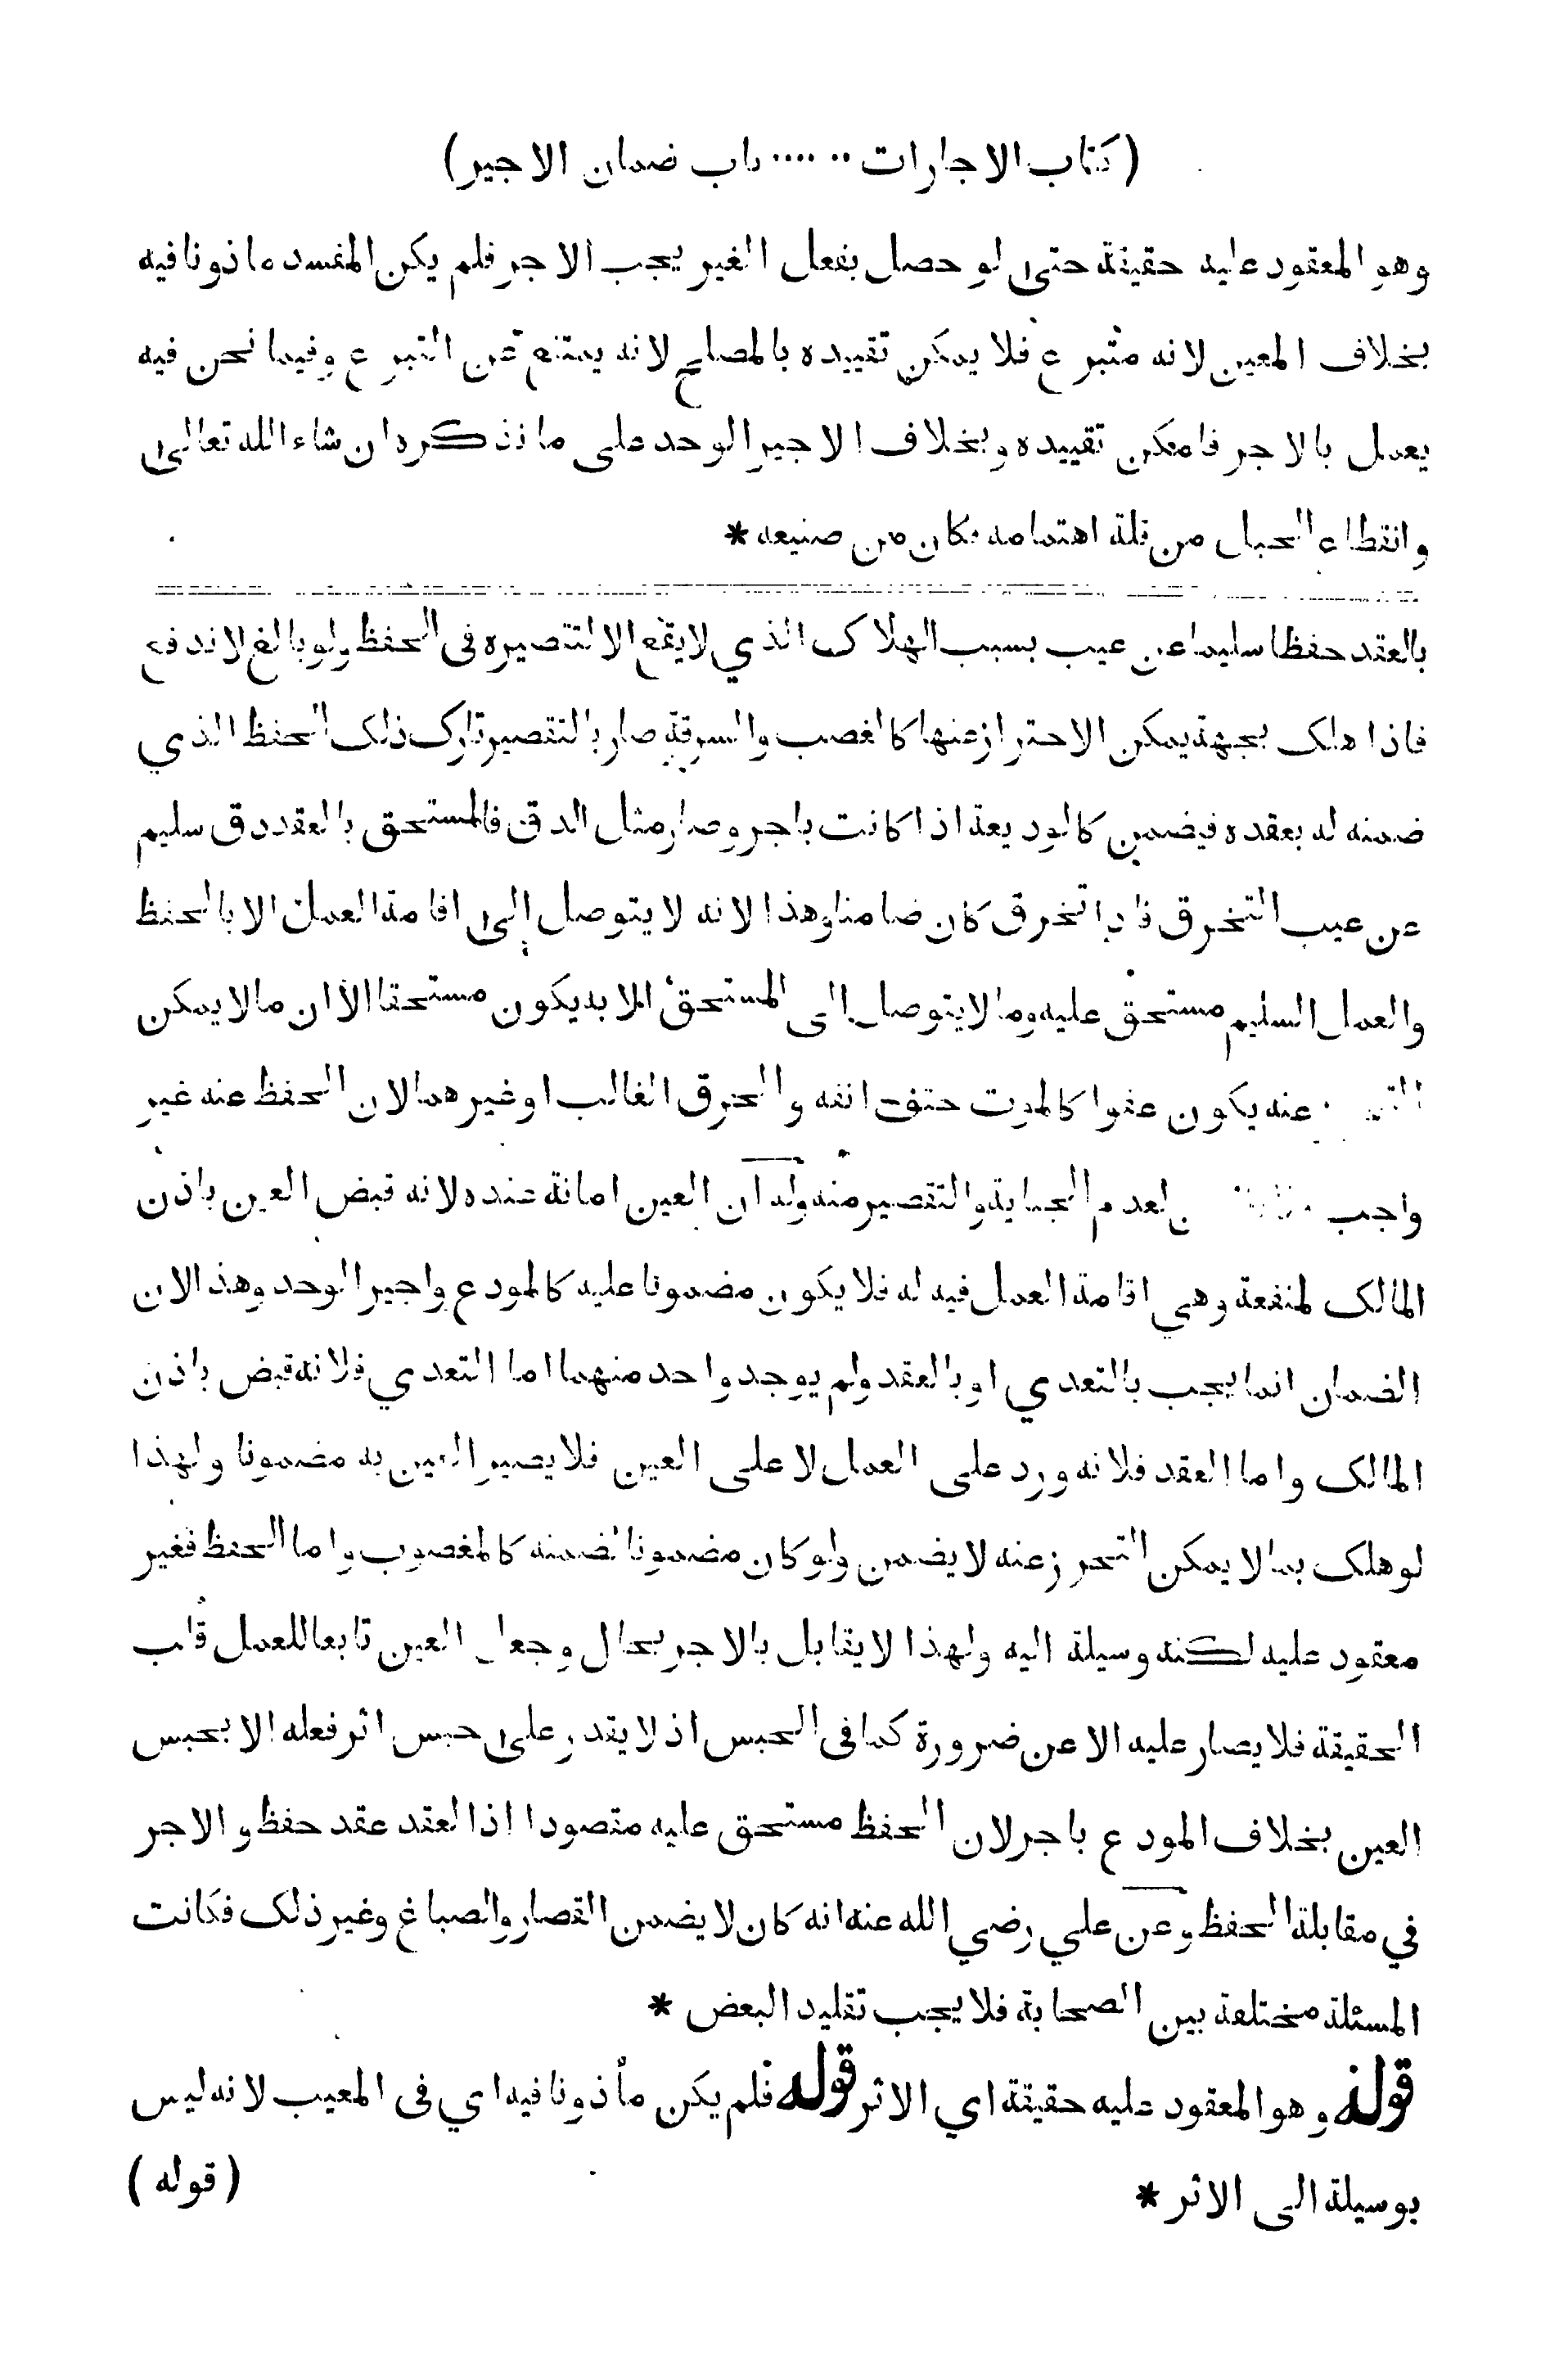 (كتاب الاجارات ٠٠ ٠٠٠٠ باب ضمان الاجير)
وهو المعقود عليه حقيقة حتى لو حصل بفعل الغير يجب الاجر فلم يكن المفسد ماذونا فيه
بخلاف المعين لانه متبرع فلا يمكن تقييده بالمصلح لانه يمتنع عن التبرع وفيما نحن فيه
يعمل بالاجر فامكن تقييده وبخلاف الاجير الوحد على ما نذكره ان شاء الله تعالى
وانقطاع الحبل من قلة اهتمامه فكان من صنيعه *
بالعقد حفظا سليما عن عيب بسبب الهلاك الذي لا يقع الا لتقصيره فى الحفظ ولو بالغ لاندفع
فاذا هلك بجهة يمكن الاحتراز عنها كالغصب والسرقة صار بالتقصير تارك ذلك الحفظ الذي
ضمنه له بعقده فيضمن كالوديعة اذا كانت باجر وصار مثل الدق فالمستحق بالعقد دق سليم
عن عيب التخرق فاذا تخرق كان ضامنا وهذا لانه لا يتوصل الى اقامة العمل الا بالحفظ
والعمل السليم مستحق عليه وما لا يتوصل الى المستحق الا به يكون مستحقا الا ان ما لا يمكن
عنه يكون عفوا كالموت حتف انفه والحرق الغالب او غيرهما لان الحفظ عنه غير
واجب لعدم الجناية والتقصير منه وله ان العين امانة عنده لانه قبض العين باذن
المالك لمنفعة وهي اقامة العمل فيه له فلا يكون مضمونا عليه كالمودع واجير الوحد وهذا لان
الضمان انما يجب بالتعدي او بالعقد ولم يوجد واحد منهما اما التعدي فلانه قبض باذن
المالك واما العقد فلانه ورد على العمل لا على العين فلا يصير العين به مضمونا ولهذا
لو هلك بما لا يمكن التحرز عنه لا يضمن ولو كان مضمونا لضمنه كالمغصوب واما الحفظ فغير
معقود عليه لكنه وسيلة اليه ولهذا لا يقابل بالاجر بحال وجعل العين تابعا للعمل قلب
الحقيقة فلا يصار عليه الا عن ضرورة كما فى الحبس اذ لا يقدر على حبس اثر فعله الا بحبس
العين بخلاف المودع باجر لان الحفظ مستحق عليه مقصودا اذ العقد عقد حفظ و الاجر
في مقابلة الحفظ وعن علي رضي الله عنه انه كان لا يضمن القصار والصباغ وغير ذلك فكانت
المسئلة مختلفة بين الصحابة فلا يجب تقليد البعض *
قوله وهو المعقود عليه حقيقة اي الاثر قوله فلم يكن مأذونا فيه اي فى المعيب لانه ليس
بوسيلة الى الاثر *
(قوله)